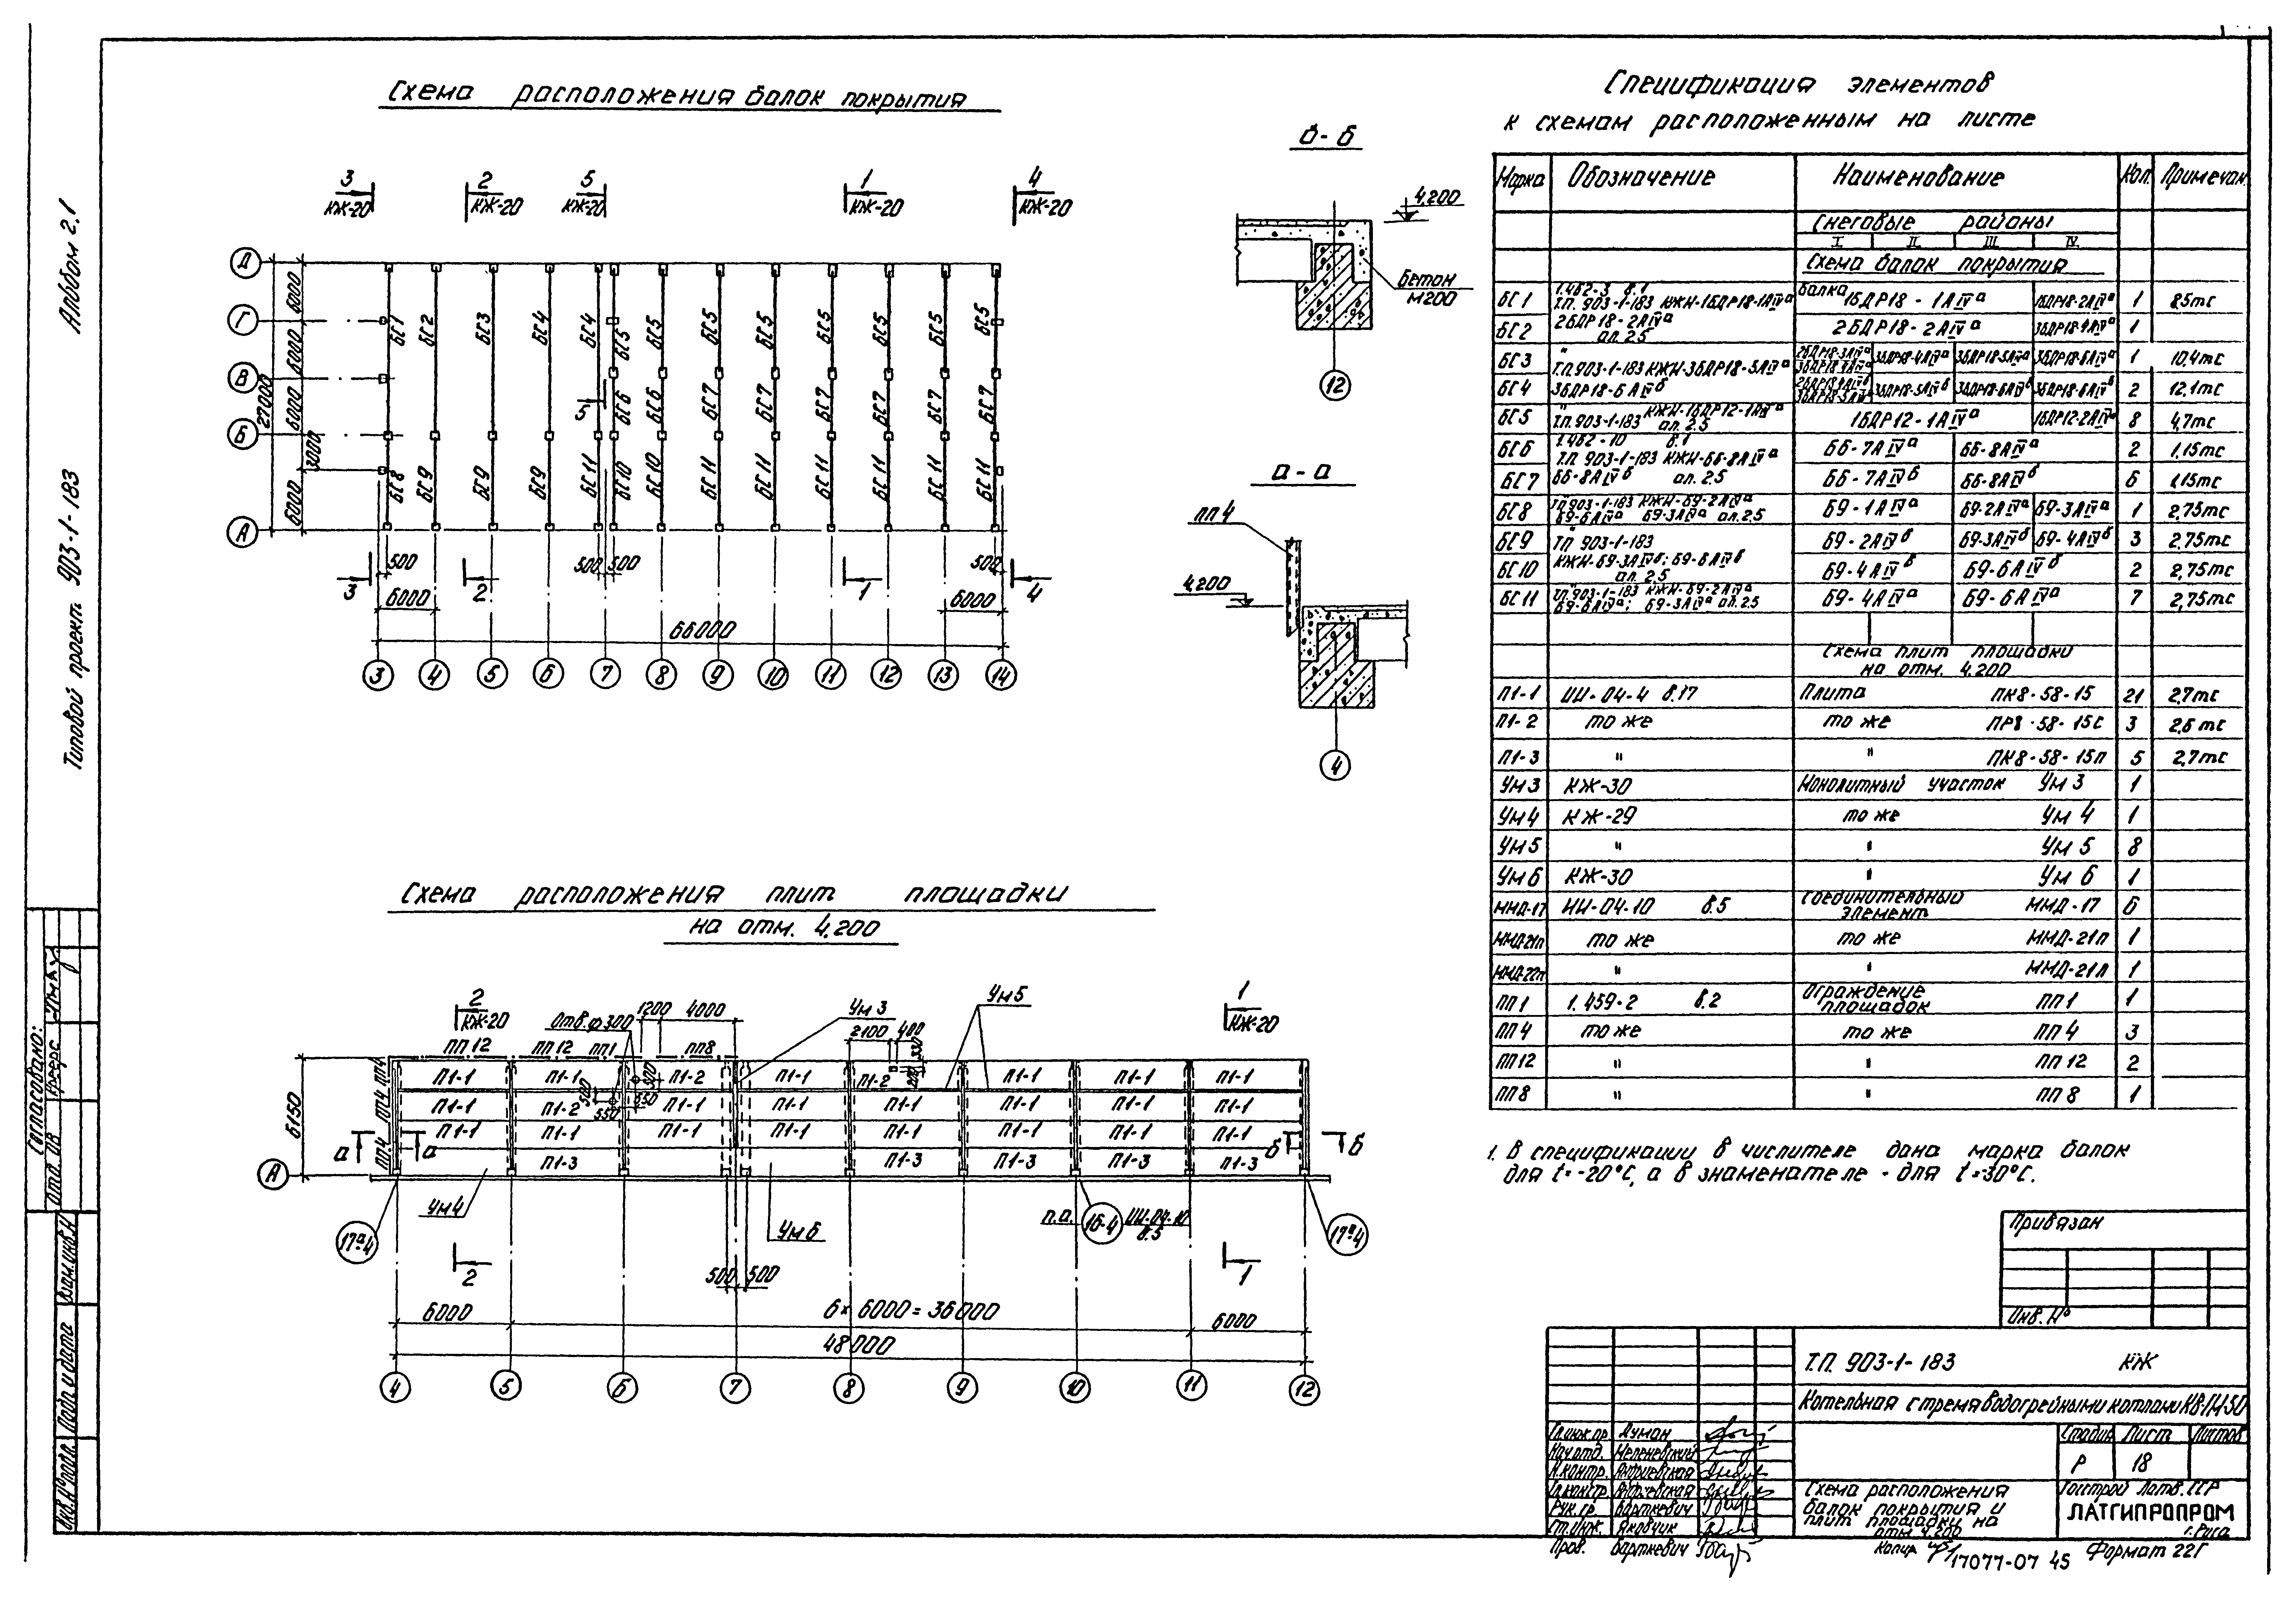 Альбом 2.1
Типовой проект 903-1-183
Схема расположения балок покрытия
3 КЖ-20
2 КЖ-20
5 КЖ-20
1 КЖ-20
4 КЖ-20
Д
Г
В
Б
А
27000
6000 6000 6000 3000 6000
БС1 БС2 БС3 БС4 БС4 БС5 БС5 БС5 БС5 БС5 БС5 БС5 БС5
БС6 БС6 БС7 БС7 БС7 БС7 БС7 БС7
БС8 БС9 БС9 БС9 БС11 БС10 БС10 БС11 БС11 БС11 БС11 БС11 БС11
5
500 500 500 500
3 2 1 4
6000 6000
66000
3 4 5 6 7 8 9 10 11 12 13 14
б-б
4.200
Бетон
М200
12
а-а
ПП 4
4.200
4
Схема расположения плит площадки
на отм. 4.200
2 КЖ-20
Отв.ф300
1200 4000
Ум 3
Ум5
1 КЖ-20
2100 400
330
200
ПП 12 ПП 12 ПП1 ПП8
ПП4 ПП4 ПП4
6150
П1-1 П1-1 П1-2 П1-1 П1-2 П1-1 П1-1 П1-1
500 500 550 550
П1-1 П1-2 П1-1 П1-1 П1-1 П1-1 П1-1 П1-1
П1-1 П1-1 П1-1 П1-1 П1-1 П1-1 П1-1 П1-1
П1-3 П1-3 П1-3 П1-3 П1-3
а а
б б
А
Ум4
Ум6
17а-4
п.а. 16-4 ИИ-04-10
в.5
17а-4
2 1
500 500
6000 6 × 6000 = 36000 6000
48000
4 5 6 7 8 9 10 11 12
Спецификация элементов
к схемам расположенным на листе
Марка Обозначение Наименование Кол. Примечан.
Снеговые районы
I II III IV
Схема балок покрытия
БС1 1.462-3 в.1
Т.П. 903-1-183 КЖИ-1БДР18-1АIVа Балка 1БДР18-1АIVа 1БДР18-2АIVа 1 8.5тс
БС2 2БДР18-2АIVа
ал. 2.5 2БДР18-2АIVа 3БДР18-4АIVа 1
БС3 "
Т.П.903-1-183 КЖИ-3БДР18-5АIVа 2БДР18-3АIVа 3БДР18-4АIVа 3БДР18-4АIVа 3БДР18-5АIVа 3БДР18-6АIVа 1 10,4тс
БС4 3БДР18-6АIVб 2БДР18-4АIVб 3БДР18-5АIVб 3БДР18-5АIVб 3БДР18-6АIVб 3БДР18-6АIVб 2 12,1тс
БС5 " КЖИ-1БДР12-1АIVа
Т.П.903-1-183 ал. 2.5 1БДР12-1АIVа 1БДР12-2АIVа 8 4,7тс
БС6 1.462-10 в.1
Т.П. 903-1-183 КЖИ-Б6-8АIVа Б6-7АIVа Б6-8АIVа 2 1,15тс
БС7 Б6-8АIVб ал. 2.5 Б6-7АIVб Б6-8АIVб 6 1,15тс
БС8 ТП903-1-183 КЖИ-Б9-2АIVа
Б9-6АIVа Б9-3АIVа ал.2.5 Б9-1АIVа Б9-2АIVа Б9-3АIVа 1 2,75тс
БС9 "
ТП 903-1-183 Б9-2АIVб Б9-3АIVб Б9-4АIVб 3 2,75тс
БС10 КЖИ-Б9-3АIVб; Б9-6АIVб
ал. 2.5 Б9-4АIVб Б9-6АIVб 2 2,75тс
БС11 Т.П.903-1-183 КЖИ-Б9-2АIVа
Б9-6АIVа; Б9-3АIVа ал.2.5 Б9-4АIVа Б9-6АIVа 7 2,75тс
Схема плит площадки
на отм. 4.200
П1-1 ИИ-04-4 в.17 Плита ПК8-58-15 21 2.7тс
П1-2 то же то же ПР8-58-15с 3 2,6тс
П1-3 " " ПК8-58-15п 5 2,7тс
Ум3 КЖ-30 Монолитный участок Ум 3 1
Ум4 КЖ-29 то же Ум 4 1
Ум5 " " Ум 5 8
Ум6 КЖ-30 " Ум 6 1
ММД-17 ИИ-04-10 в.5 Соединительный
элемент ММД-17 6
ММД-21п то же то же ММД-21п 1
ММД-22п " " ММД-21л 1
ПП1 1.459-2 в.2 Ограждение
площадок ПП1 1
ПП4 то же то же ПП 4 3
ПП12 " " ПП 12 2
ПП8 " " ПП 8 1
1. В спецификации в числителе дана марка балок
для t=-20°С, а в знаменателе - для t=-30°С.
Привязан
Инв. №
Т.П. 903-1-183 КЖ
Котельная с тремя водогрейными котлами КВ-ГМ-50
Стадия Лист Листов
Р 18
Гл.инж.пр. Думан
Нач.отд. Меленевский
Н.контр. Андриевская
Гл.констр. Андриевская
Рук.гр. Барткевич
Ст.инж. Яковчик
Пров. Барткевич
Схема расположения
балок покрытия и
плит площадки на
отм 4.200
Госстрой Латв.ССР
ЛАТГИПРОПРОМ
г.Рига
Копир.
17077-07 45
Формат 22Г
Согласовано:
Отд. ОВ
Взам.инв.№
Подп. и дата
Инв.№ подл.